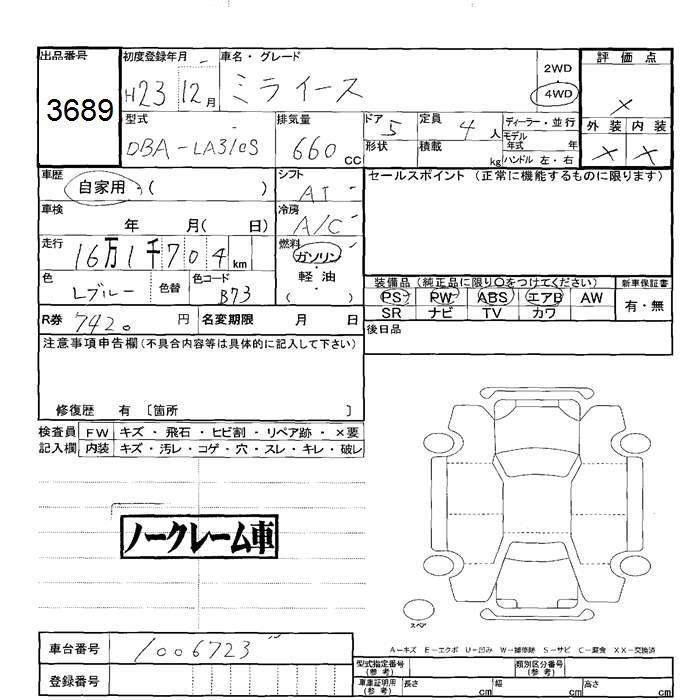 出品番号 初度登録年月 車名・グレード 2WD 評価点
3689 H23 12月 ミライース 4WD ×
型式 排気量 ドア 定員 ディーラー・並行 外装 内装
DBA-LA310S 660cc 5 4人 モデル年式 年 × ×
形状 積載 kg ハンドル 左・右
車歴 シフト セールスポイント (正常に機能するものに限ります)
自家用 ( ) AT
車検 冷房
年 月( 日) A/C
走行 燃料
16万1千704km ガソリン
色 色替 色コード 軽油
Lブルー B73 ( )
装備品 (純正品に限り○をつけてください) 新車保証書
PS PW ABS エアB AW 有・無
SR ナビ TV カワ
R券 7420円 名変期限 月 日
後日品
注意事項申告欄(不具合内容等は具体的に記入して下さい)
修復歴 有 〔箇所 〕
検査員 FW キズ・飛石・ヒビ割・リペア跡・×要
記入欄 内装 キズ・汚レ・コゲ・穴・スレ・キレ・破レ
ノークレーム車
スペア
A-キズ E-エクボ U-凹み W-補修跡 S-サビ C-腐食 XX-交換済
車台番号 1006723
登録番号
型式指定番号(参考) 類別区分番号(参考)
車庫証明用(参考) 長さ cm 幅 cm 高さ cm